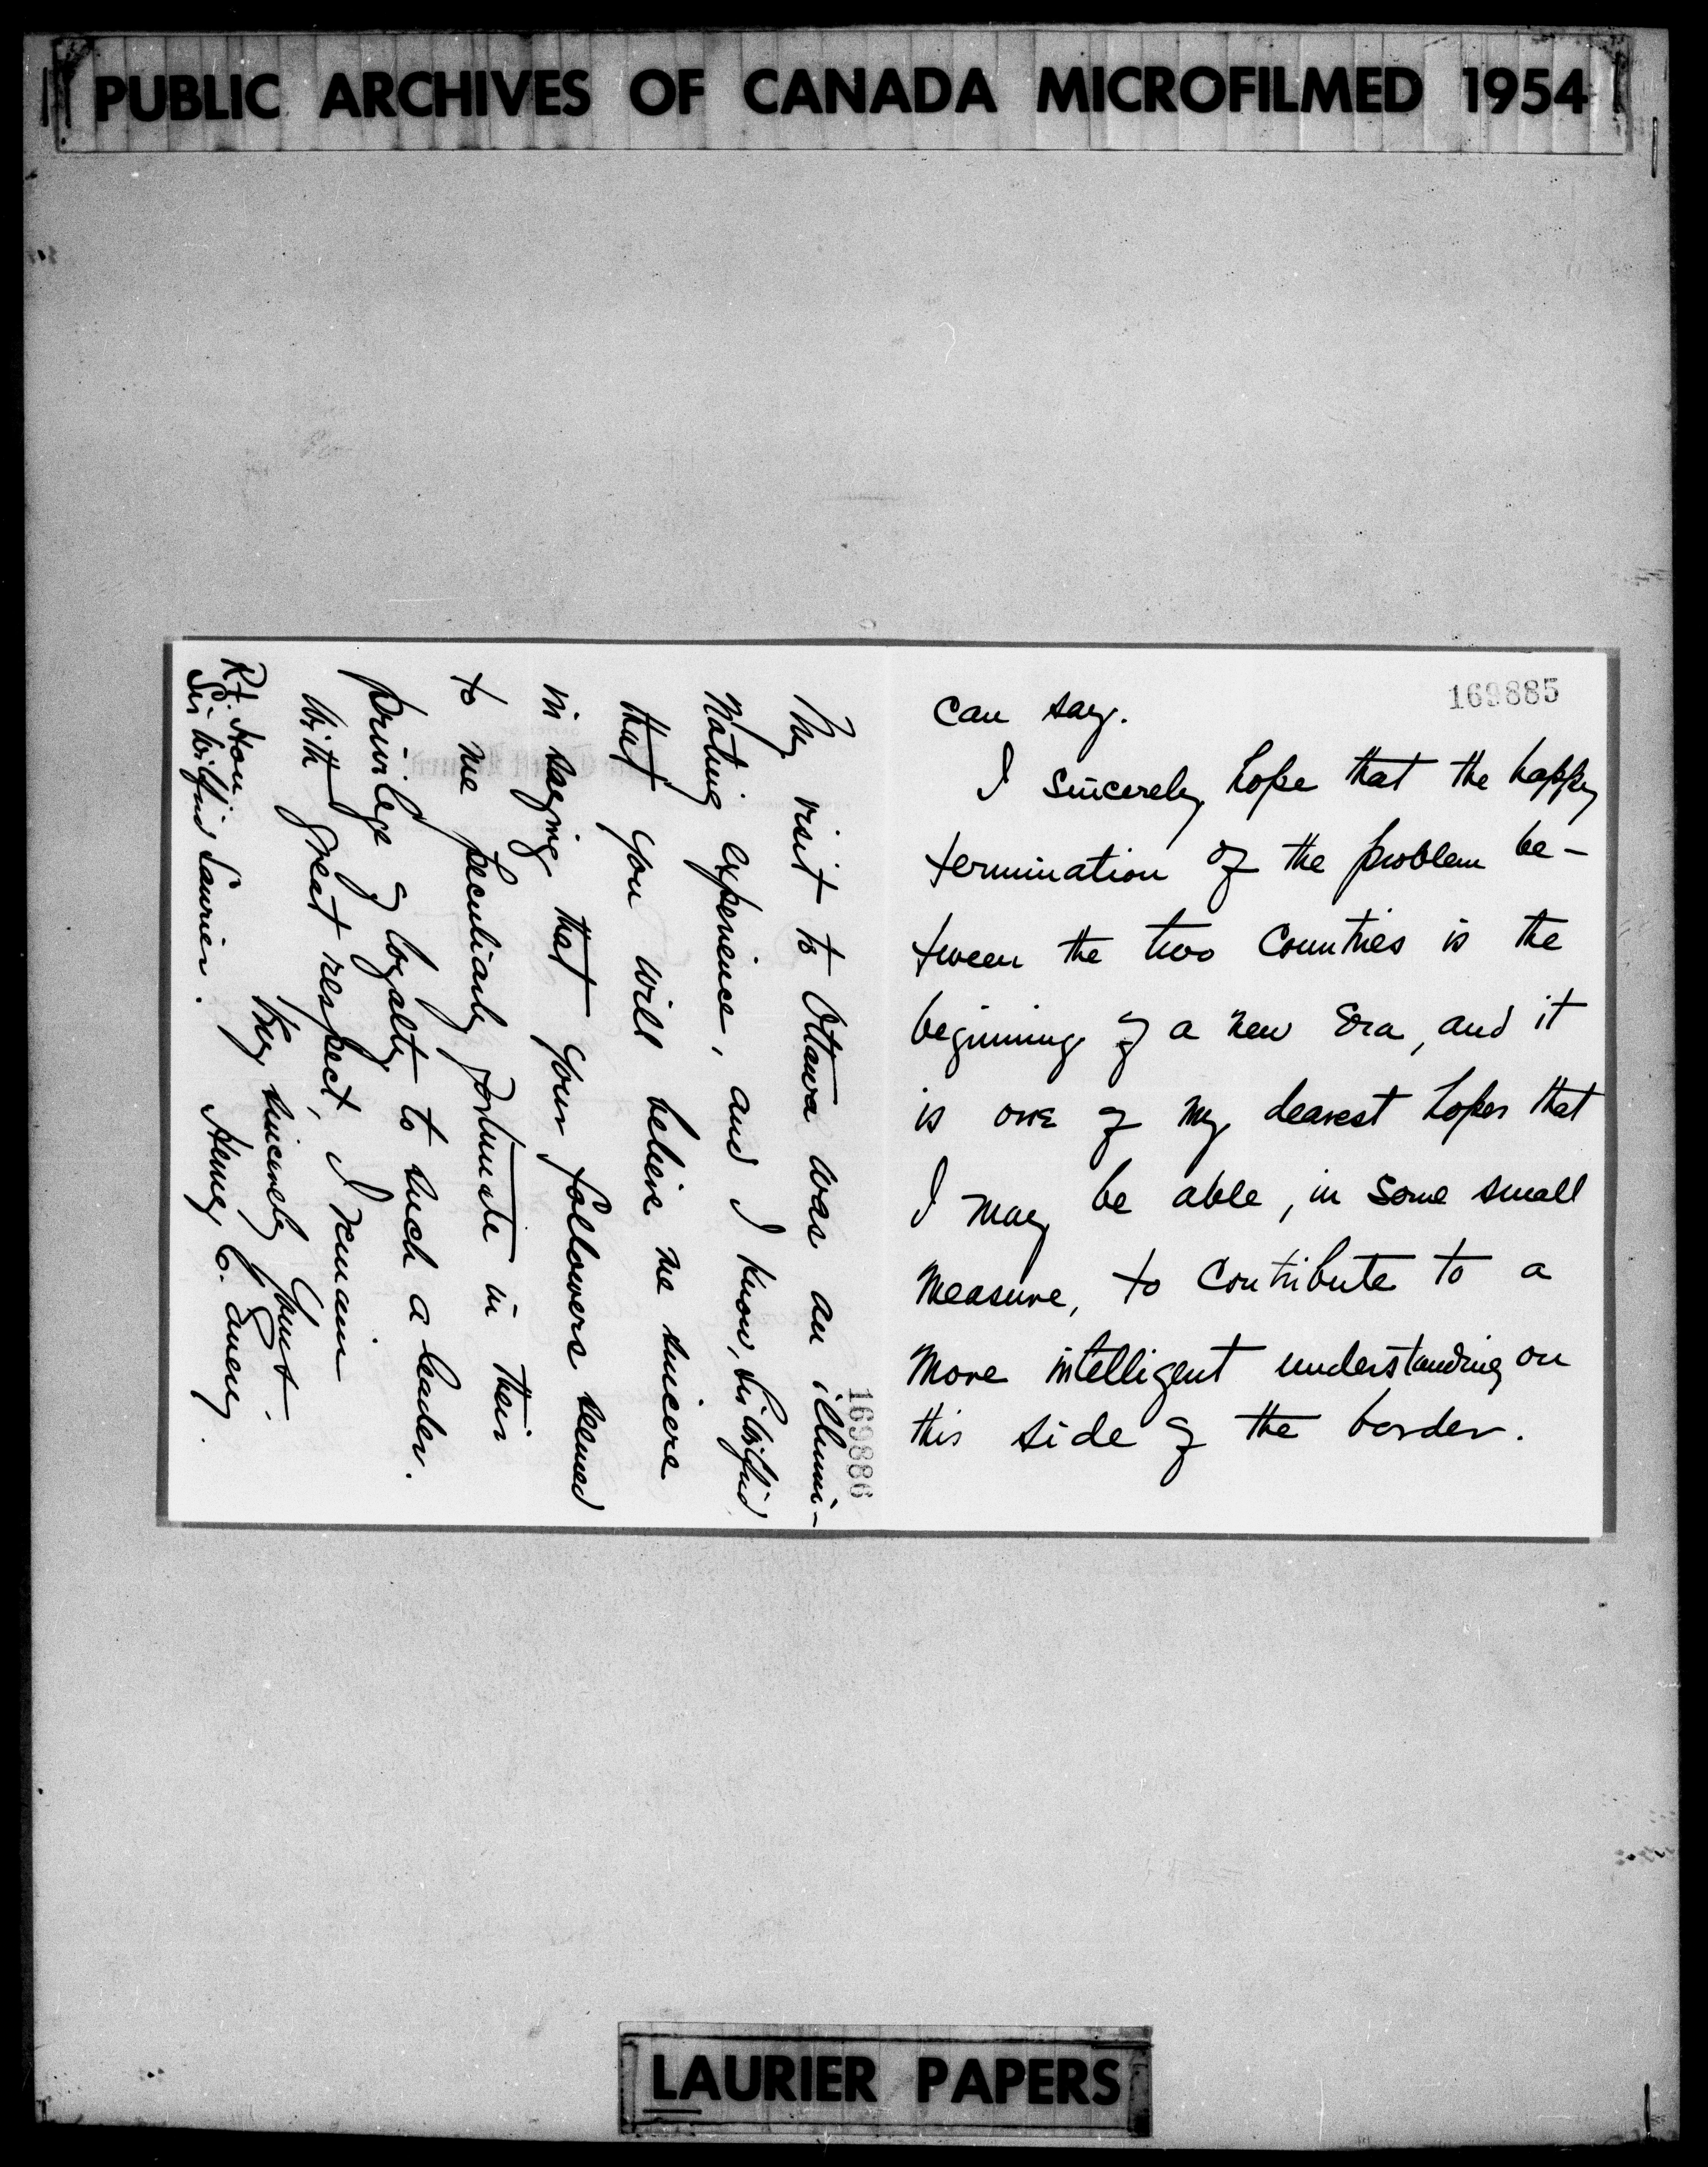 PUBLIC ARCHIVES OF CANADA MICROFILMED 1954
169885
can say.
I sincerely hope that the happy
termination of the problem be-
tween the two countries is the
beginning of a new era, and it
is one of my dearest hopes that
I may be able, in some small
measure, to contribute to a
more intelligent understanding on
this side of the border.
169886
My visit to Ottawa was an illumi-
nating experience, and I know, Sir Wilfrid,
that you will believe me sincere
in saying that your followers seemed
to me peculiarly fortunate in their
privilege of loyalty to such a leader.
With great respect, I remain
Very sincerely yours
Henry C.
Rt. Hon.
Sir Wilfrid Laurier.
LAURIER PAPERS